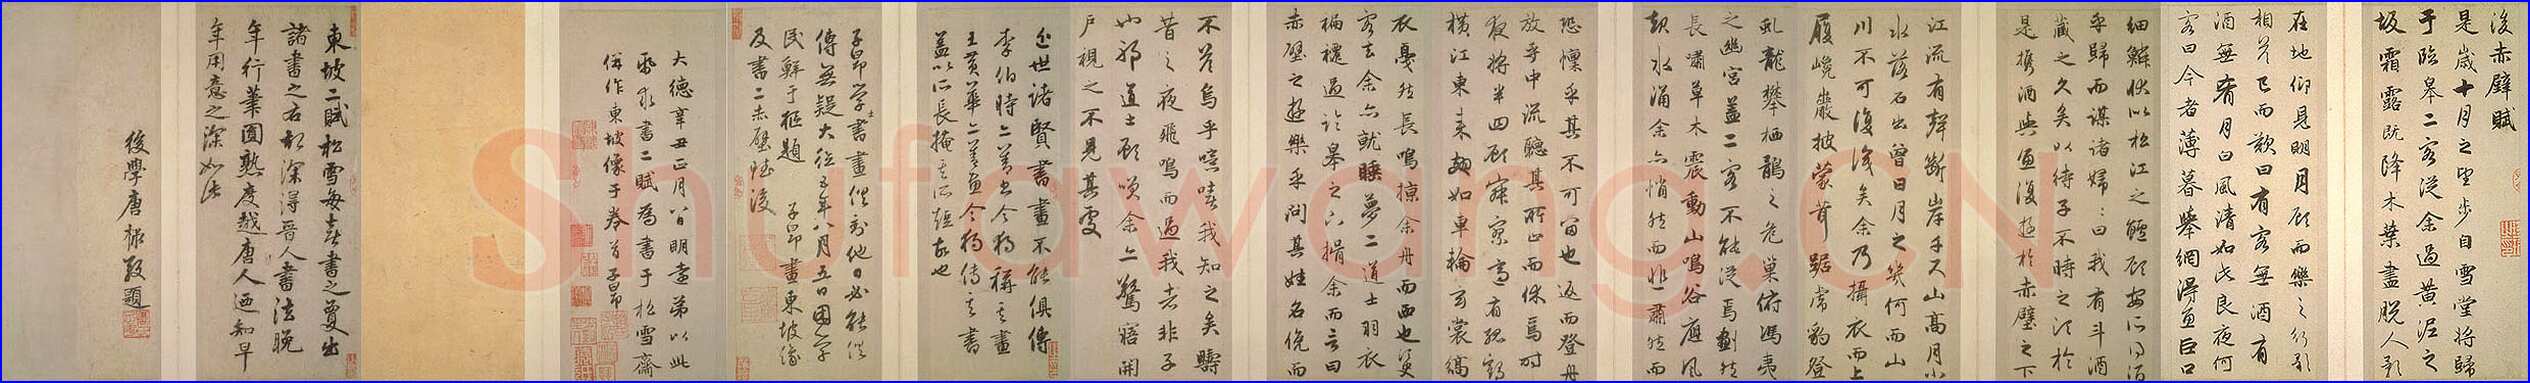 後赤壁賦
是歲十月之望步自雪堂將歸
于臨皋二客從余過黃泥之
坂霜露既降木葉盡脫人影
在地仰見明月顧而樂之行歌
相答已而歎曰有客無酒有
酒無肴月白風清如此良夜何
客曰今者薄暮舉網得魚巨口
細鱗狀似松江之鱸顧安所得酒
乎歸而謀諸婦婦曰我有斗酒
藏之久矣以待子不時之須於
是攜酒與魚復遊於赤壁之下
江流有聲斷岸千尺山高月小
水落石出曾日月之幾何而山
川不可復識矣余乃攝衣而上
履巉巖披蒙茸踞虎豹登
虬龍攀栖鶻之危巢俯馮夷
之幽宮蓋二客不能從焉劃然
長嘯草木震動山鳴谷應風
起水涌余亦悄然而悲肅然而
恐凜乎其不可留也返而登舟
放乎中流聽其所止而休焉時
夜將半四顧寂寥適有孤鶴
橫江東來翅如車輪玄裳縞
衣戛然長鳴掠余舟而西也須臾
客去余亦就睡夢二道士羽衣
蹁躚過臨皋之下揖余而言曰
赤壁之遊樂乎問其姓名俛而
不答嗚乎噫嘻我知之矣疇
昔之夜飛鳴而過我者非子
也邪道士顧笑余亦驚寤開
戶視之不見其處
近世諸賢書畫不能俱傳
李伯時亦善書今獨稱其畫
王黃華亦善畫今獨傳其書
蓋以所長掩其所短故也
子昂學士書畫俱到他日必能俱
傳無疑大德五年八月五日困學
民鮮于樞題 子昂畫東坡像
及書二赤壁賦後
大德辛丑正月八日明遠弟以此
紙求書二賦為書于松雪齋
併作東坡像于卷首子昂
東坡二賦松雪每喜書之蓋出
諸書之右却深得晉人書法晚
年行筆圓熟度越唐人迺知早
年用意之深如此
後學唐棣敬題
shufawang.CN